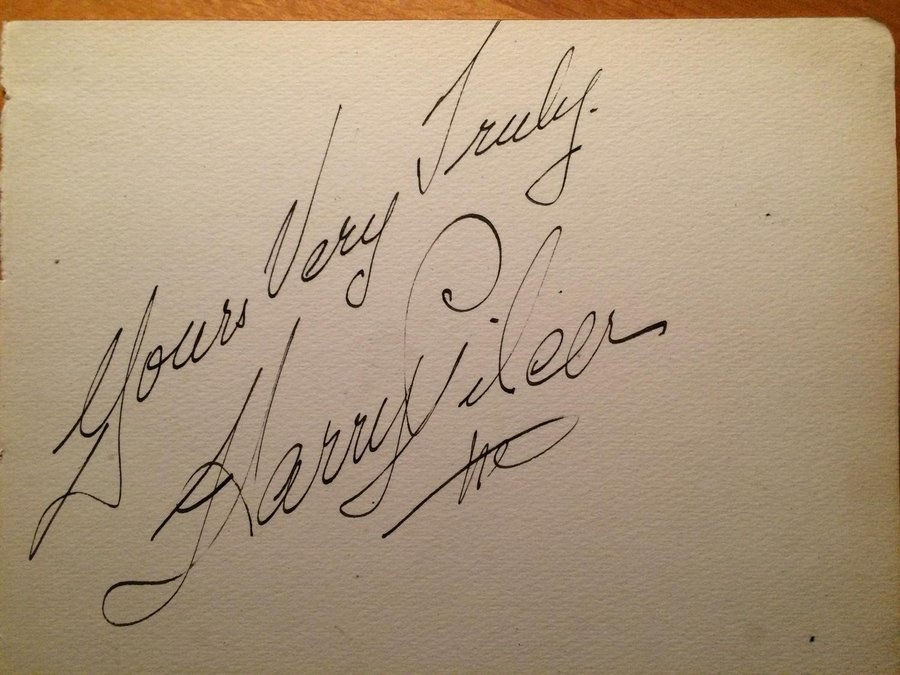 Yours Very Truly.
Harry Pilcer